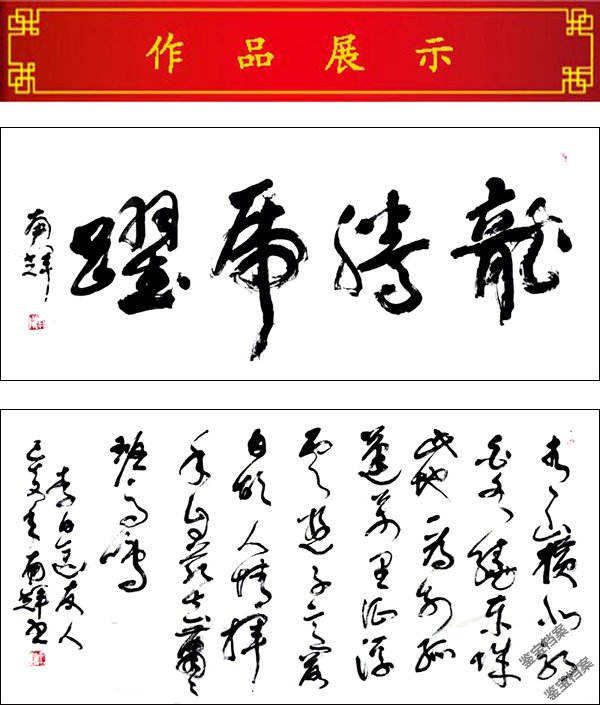 作品展示
龍騰虎躍
南輝
青山橫北郭
白水繞東城
此地一為別孤
蓬萬里征浮
雲遊子意落
日故人情揮
手自茲去蕭蕭
班馬鳴
李白送友人
己亥 南輝書
鉴宝档案
鉴宝档案